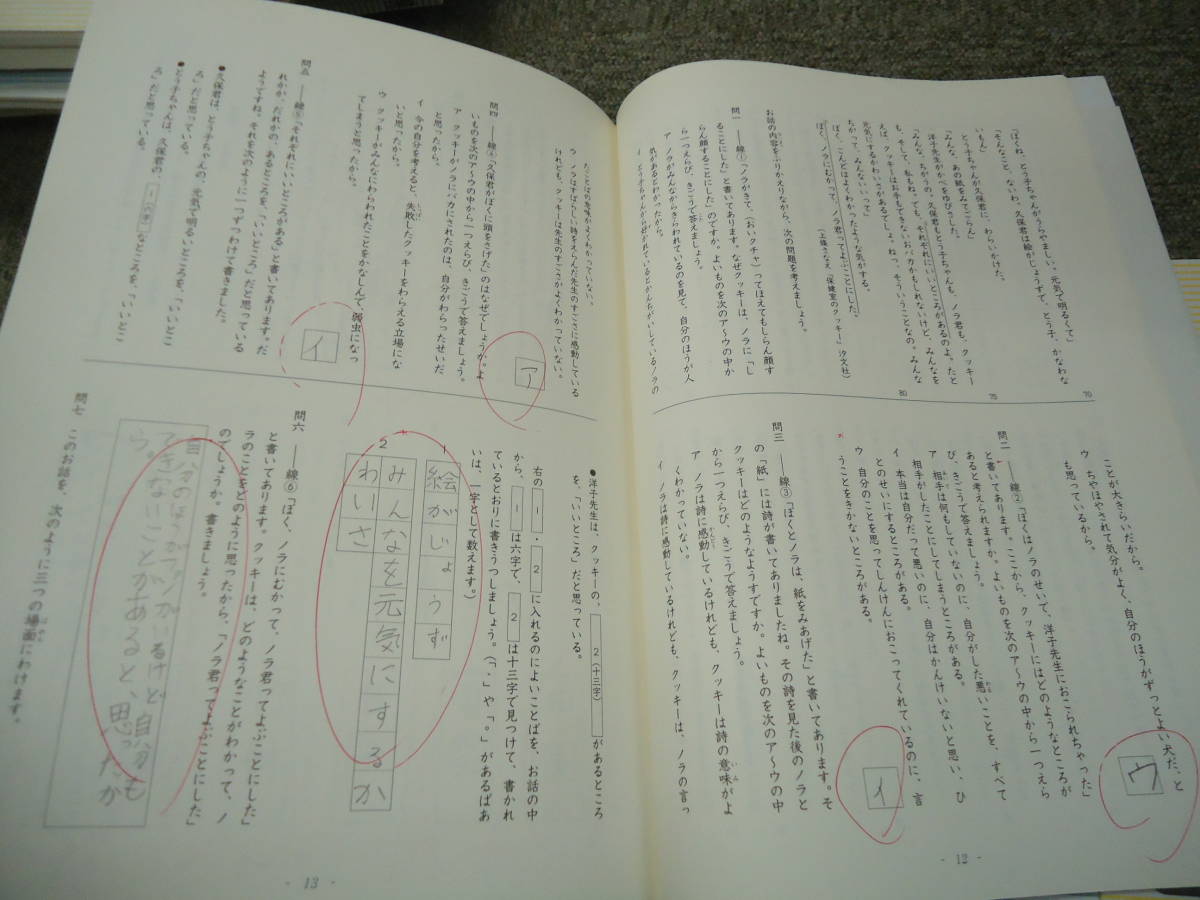 「ぼくね、とう子ちゃんがうらやましい。元気で明るくて」
「そんなこと、ないわ。久保君は絵がじょうずで、とう子、かなわな
いもん」
とう子ちゃんが久保君に、わらいかけた。
「みんな、あの紙をみてごらん」
洋子先生がかべをゆびさした。
「みんな、ちがうの。久保君もとう子ちゃんも、ノラ君も、クッキー
も、そして、私もね。でも、それぞれにいいところがあるのよ。たと
えば、クッキーはおすもできないおバカかもしれないけど、みんなを
元気にするかわいさがあるでしょ。ねっ、そういうことなの。みんな
ちがって、みんないいって」
ぼく、こんどはよくわかったような気がする。
ぼく、ノラにむかって、ノラ君ってよぶことにした。
(上條さなえ「保健室のクッキー」汐文社)
70
75
80
お話の内容をふりかえりながら、次の問題を考えましょう。
問一 ――線①「ノラがきて、(おいクチャ)ってほえてもしらん顔す
ることにした」と書いてあります。なぜクッキーは、ノラに「し
らん顔することにした」のですか。よいものを次のア〜ウの中か
ら一つえらび、きごうで答えましょう。
ア ノラがみんなからきらわれているのを見て、自分のほうが人
気があるとわかったから。
イ とう子ちゃんから好かれているとかんちがいしているノラの
ことが大きらいだから。
ウ ちやほやされて気分がよく、自分のほうがずっとよい犬だ、と
も思っているから。
ウ
問二 ――線②「ぼくはノラのせいで、洋子先生におこられちゃった」
と書いてあります。ここから、クッキーにはどのようなところが
あると考えられますか。よいものを次のア〜ウの中から一つえら
び、きごうで答えましょう。
ア 相手は何もしていないのに、自分がした悪いことを、すべて
相手がしたことにしてしまうところがある。
イ 本当は自分だって悪いのに、自分はかんけいないと思い、ひ
とのせいにするところがある。
ウ 自分のことを思ってしんけんにおこってくれているのに、言
うことをきかないところがある。
イ
問三 ――線③「ぼくとノラは、紙をみあげた」と書いてあります。そ
の「紙」には詩が書いてありましたね。その詩を見た後のノラと
クッキーはどのようなようすですか。よいものを次のア〜ウの中
から一つえらび、きごうで答えましょう。
ア ノラは詩に感動しているけれども、クッキーは詩の意味がよ
くわかっていない。
イ ノラは詩に感動しているけれども、クッキーは、ノラの言っ
- 12 -
たことばの意味がよくわかっていない。
ウ ノラはすばらしい詩をえらんだ先生のすごさに感動している
けれども、クッキーは先生のすごさがよくわかっていない。
ア
問四 ――線④「久保君がぼくに頭をさげた」のはなぜでしょうか。よ
いものを次のア〜ウの中から一つえらび、きごうで答えましょう。
ア クッキーがノラにバカにされたのは、自分がわらったせいだ
と思ったから。
イ 今の自分を考えると、失敗したクッキーをわらえる立場にな
いと思ったから。
ウ クッキーがみんなにわらわれたことをかなしんで、弱虫になっ
てしまうと思ったから。
イ
問五 ――線⑤「それぞれにいいところがある」と書いてあります。だ
れかが、だれかの、あるところを、「いいところ」だと思っている
ようですね。それを次のように一つずつわけて書きました。
●久保君は、とう子ちゃんの、元気で明るいところを、「いいとこ
ろ」だと思っている。
●とう子ちゃんは、久保君の、1(六字)なところを、「いいとこ
ろ」だと思っている。
●洋子先生は、クッキーの、2(十三字)があるところ
を、「いいところ」だと思っている。
右の1・2に入れるのによいことばを、お話の中
から、1は六字で、2は十三字で見つけて、書かれ
ているとおりに書きうつしましょう。(「、」や「。」があるばあ
いは、一字として数えます。)
1 絵がじょうず
2 みんなを元気にするか
わいさ
問六 ――線⑥「ぼく、ノラにむかって、ノラ君ってよぶことにした」
と書いてあります。クッキーは、どのようなことがわかって、ノ
ラのことをどのように思ったから、「ノラ君ってよぶことにした」
のでしょうか。書きましょう。
るけど自分も
できないことがあると、思ったか
ら。
問七 このお話を、次のように三つの場面にわけます。
- 13 -